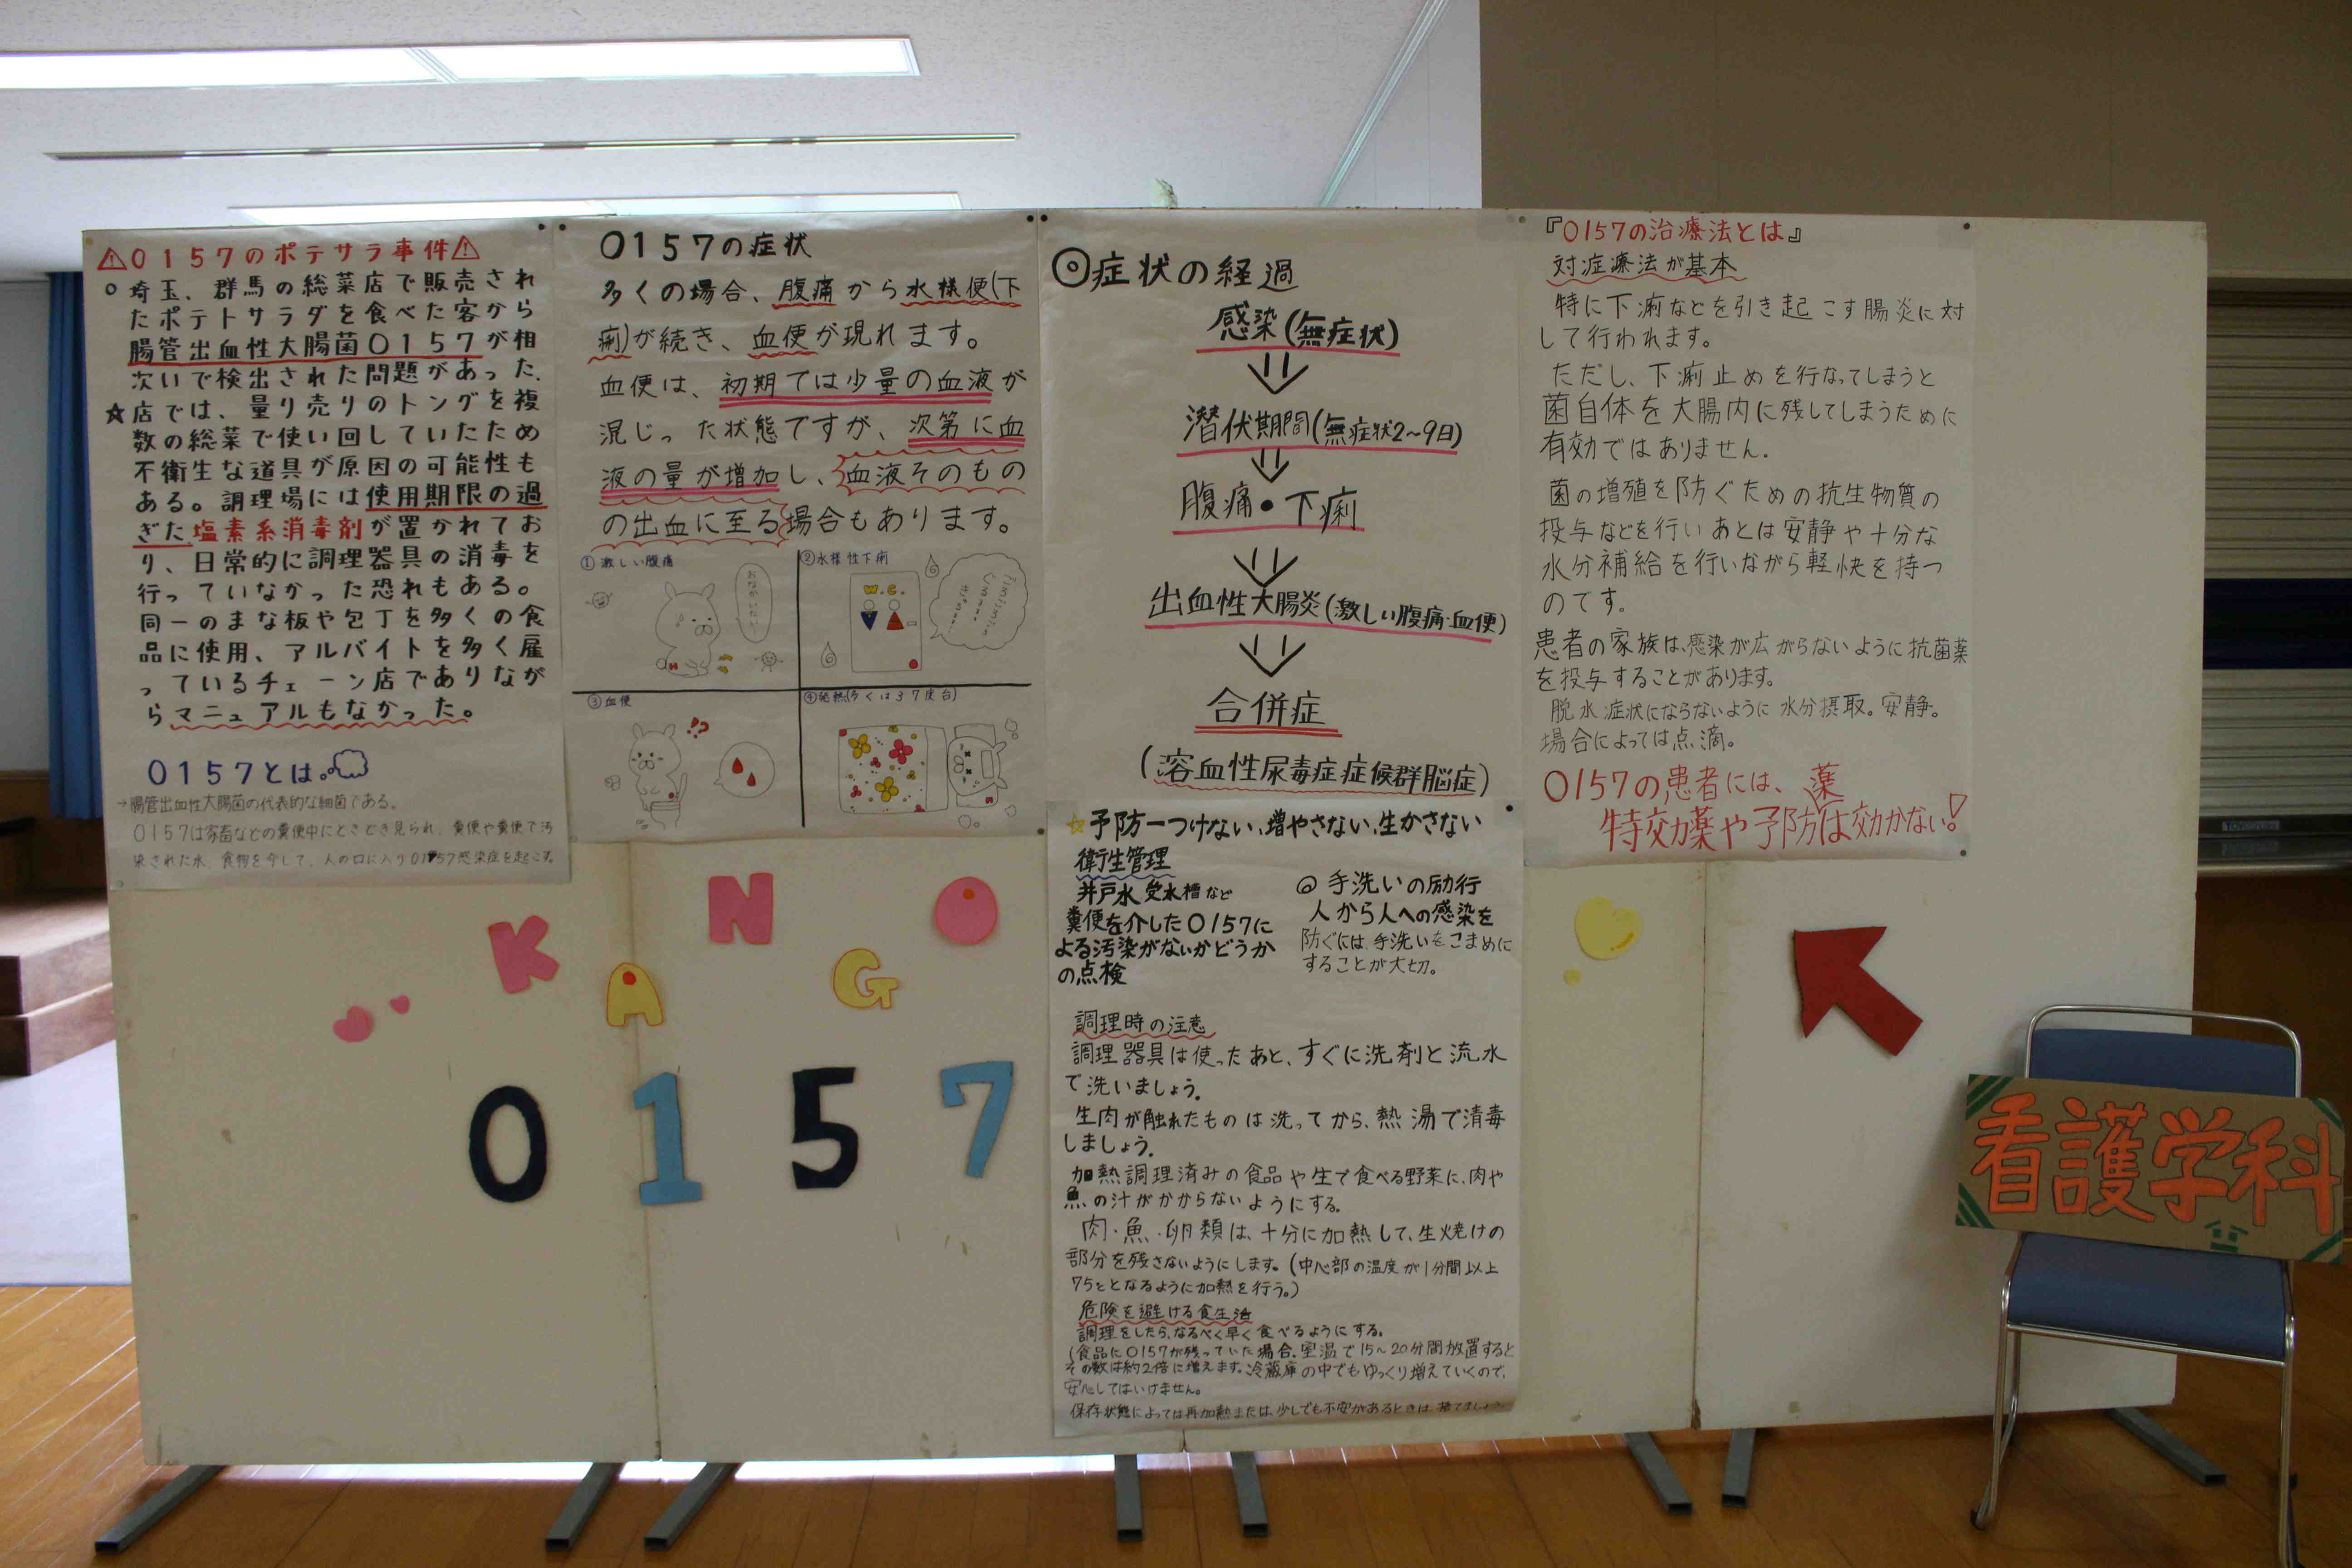 ⚠0157のポテサラ事件⚠
○埼玉、群馬の総菜店で販売され
たポテトサラダを食べた客から
腸管出血性大腸菌0157が相
次いで検出された問題があった、
☆店では、量り売りのトングを複
数の総菜で使い回していたため
不衛生な道具が原因の可能性も
ある。調理場には使用期限の過
ぎた塩素系消毒剤が置かれてお
り、日常的に調理器具の消毒を
行っていなかった恐れもある。
同一のまな板や包丁を多くの食
品に使用、アルバイトを多く雇
っているチェーン店でありなが
らマニュアルもなかった。
0157とは。
→腸管出血性大腸菌の代表的な細菌である。
0157は家畜などの糞便中にときどき見られ、糞便や糞便で汚
染された水、食物を介して、人の口に入り0157感染症を起こす。
0157の症状
多くの場合、腹痛から水様便(下
痢)が続き、血便が現れます。
血便は、初期では少量の血液が
混じった状態ですが、次第に血
液の量が増加し、血液そのもの
の出血に至る場合もあります。
①激しい腹痛
おなかいたい
②水様性下痢
W.C.
③血便
!?
④発熱(多くは37度台)
◎症状の経過
感染(無症状)
潜伏期間(無症状2~9日)
腹痛・下痢
出血性大腸炎(激しい腹痛・血便)
合併症
(溶血性尿毒症症候群脳症)
☆予防ーつけない、増やさない、生かさない
衛生管理
井戸水 受水槽など
糞便を介した0157に
よる汚染がないかどうか
の点検
◎手洗いの励行
人から人への感染を
防ぐには、手洗いをこまめに
することが大切。
調理時の注意
調理器具は使ったあと、すぐに洗剤と流水
で洗いましょう。
生肉が触れたものは洗ってから、熱湯で清毒
しましょう。
加熱調理済みの食品や生で食べる野菜に、肉や
魚の汁がかからないようにする。
肉・魚・卵類は、十分に加熱して、生焼けの
部分を残さないようにします。(中心部の温度が1分間以上
75℃となるように加熱を行う。)
危険を避ける食生活
調理をしたら、なるべく早く食べるようにする。
(食品に0157が残っていた場合、室温で15~20分間放置すると
その数は約2倍に増えます。冷蔵庫の中でもゆっくり増えていくので、
安心してはいけません。
保存状態によっては再加熱または、少しでも不安があるときは、捨てましょう
『0157の治療法とは』
対症療法が基本
特に下痢などを引き起こす腸炎に対
して行われます。
ただし、下痢止めを行なってしまうと
菌自体を大腸内に残してしまうために
有効ではありません。
菌の増殖を防ぐための抗生物質の
投与などを行いあとは安静や十分な
水分補給を行いながら軽快を持つ
のです。
患者の家族は、感染が広がらないように抗菌薬
を投与することがあります。
脱水症状にならないように水分摂取。安静。
場合によっては点滴。
0157の患者には、薬
特効薬や予防は効かない!
KANGO
0157
看護学科